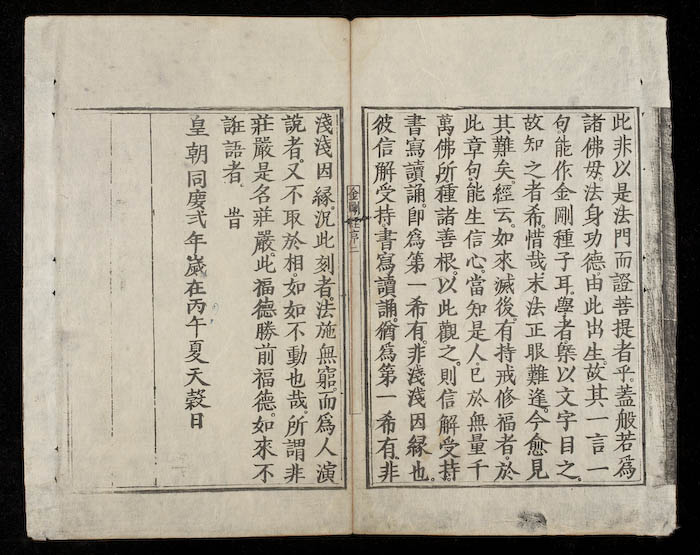 此非以是法門而證菩提者乎。蓋般若爲
諸佛母。法身功德。由此出生。故其一言一
句。能作金剛種子耳。學者槩以文字目之。
故知之者希。惜哉末法正眼難逢。今愈見
其難矣。經云。如來滅後。有持戒修福者。於
此章句。能生信心。當知是人。已於無量千
萬佛所種諸善根。以此觀之。則信解受持。
書寫讀誦。即爲第一希有。非淺淺因緣也。
彼信解受持書寫讀誦。猶爲第一希有。非
金剛經序二
淺淺因緣。況此刻者。法施無窮。而爲人演
說者。又不取於相。如如不動也哉。所謂非
莊嚴是名莊嚴。此福德勝前福德。如來不
誑語者。旹
皇朝同慶弍年歲在丙午夏天穀日